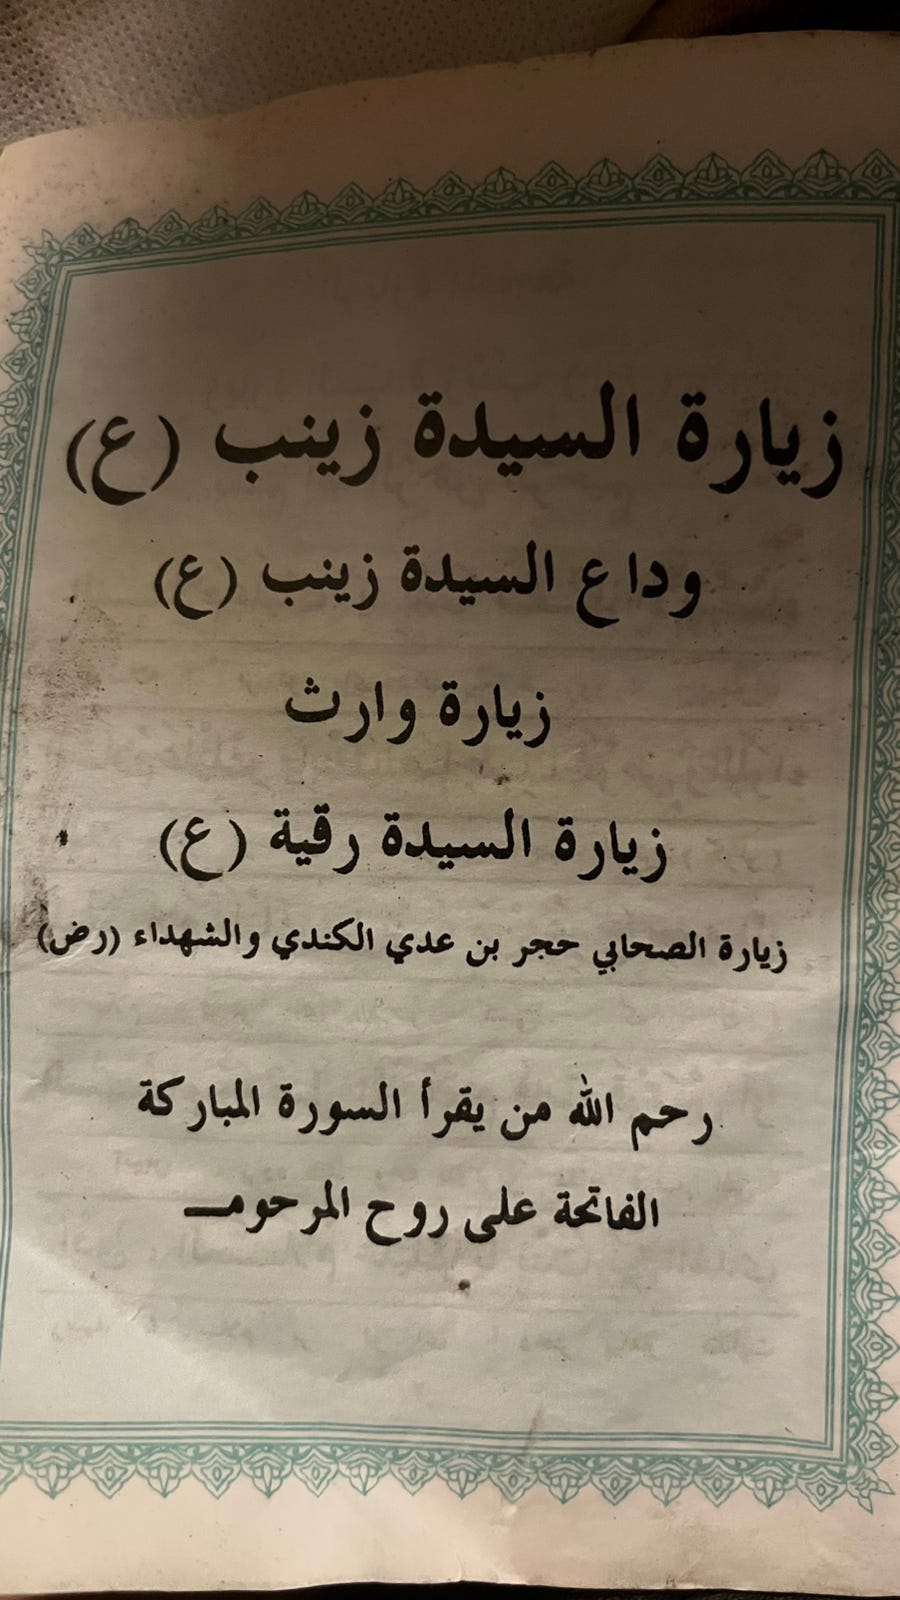 زيارة السيدة زينب (ع)
وداع السيدة زينب (ع)
زيارة وارث
زيارة السيدة رقية (ع)
زيارة الصحابي حجر بن عدي الكندي والشهداء (رض)
رحم الله من يقرأ السورة المباركة
الفاتحة على روح المرحومـــ